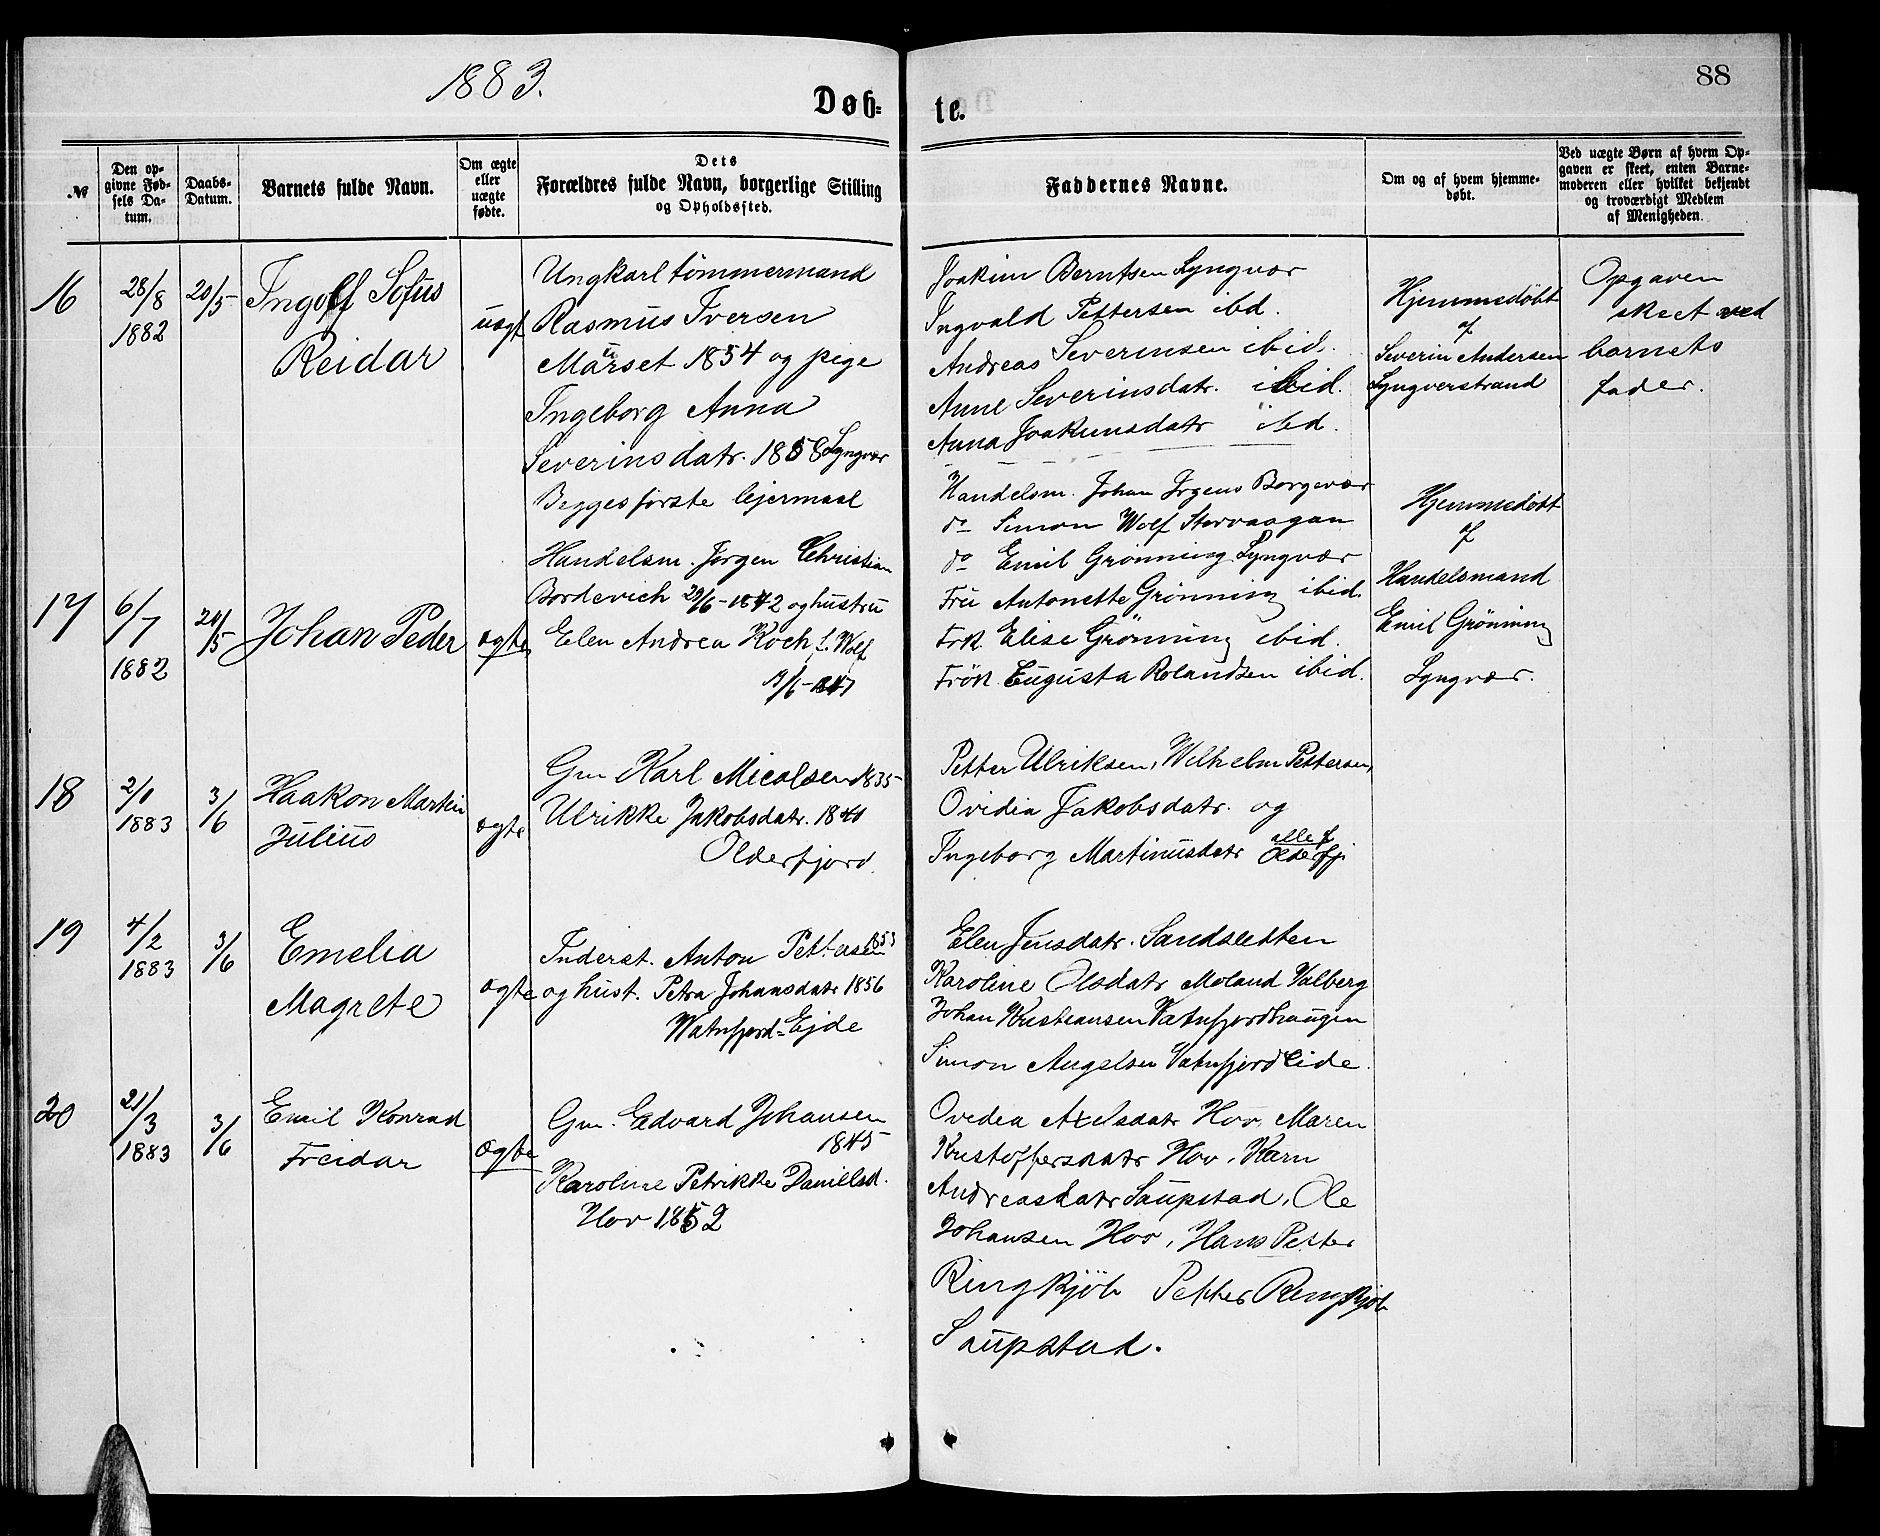 1883.
88
Døb-
te.
№
Den op-
givne Fød-
sels Da-
tum.
Daabs-
Datum.
Barnets fulde Navn.
Om ægte
eller
uægte
fødte.
Dets
Forældres fulde Navn, borgerlige Stilling
og Opholdssted.
Faddernes Navne.
Om og af hvem hjemme-
døbt.
Ved uægte Børn af hvem Op-
gaven er skeet, enten Barne-
moderen eller hvilket bekjendt
og troværdigt Medlem
af Menigheden.
16
28/8
1882
20/5
Ingolf Sofus
Reidar
uægt
Ungkarl tömmermand
Rasmus Iversen
Maurset 1854 og pige
Ingeborg Anna
Severinsdatr. 1858 Lyngvær
Begges förste lejermaal
Joakim Berntsen Lyngvær
Ingvald Pettersen ibd.
Andreas Severinsen ibid.
Anne Severinsdatr. ibid.
Anna Joakimsdatr ibd.
Hjemmedöbt
af
Severin Andersen
Lyngverstrand
Opgaven
skeet ved
barnets
fader.
17
6/7
1882
20/5
Johan Peder
ægte
Handelsm. Jörgen Christian
Bordevich 29/6-1842 og hustru
Elen Andrea Koch f. Wolf
Handelsm. Johan Jrgens Borgevær
do Simon Wolf Storvaagan
do Emil Grönning Lyngvær
Fru Antonette Grönning ibid.
Frk. Elise Grönning ibid.
Frök. Eugusta Rolandsen ibid.
Hjemmedöbt
af
Handelsmand
Emil Grönning
Lyngvær.
18
2/1
1883
3/6
Haakon Martin
Julius
ægte
Gm Karl Micalsen 1835
Ulrikke Jakobsdatr. 1841
Olderfjord.
Petter Ulriksen, Wilhelm Pettersen,
Ovidia Jakobsdatr. og
Ingeborg Martinusdatr alle f
Olderfj
19
4/2
1883
3/6
Emelia
Magrete
ægte
Inderst. Anton Pettersen 1853
og hust. Petra Johansdatr 1856
Watnfjord-Ejde
Elen Jensdatr. Sandsletten
Karoline Olsdatr Moland Valberg
Johan Kristiansen Vatnfjordhaugen
Simon Angelsen Vatnfjordeide.
20
21/3
1883
3/6
Emil Konrad
Freidar
ægte
Gm. Edvard Johansen
1845
Karoline Petrikke Danielsd.
Hov 1852
Ovidia Axelsdatr Hov, Maren
Kristoffersdatr Hov, Karn
Andreasdatr Saupstad, Ole
Johansen Hov, Hans Petter
Ringkjöb Petter Ringkjöb
Saupstad.